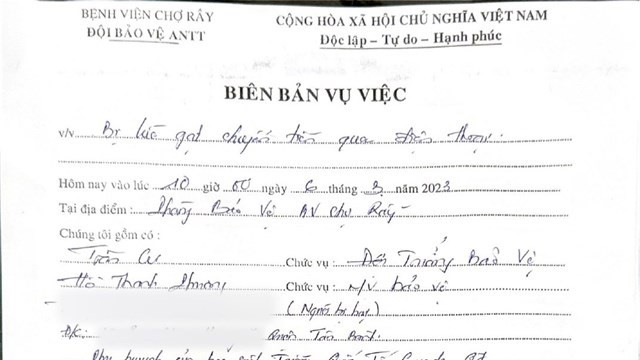 BỆNH VIÊN CHỢ RẪY
CỘNG HÒA XÃ HỘI CHỦ NGHĨA VIỆT NAM
ĐỘI BẢO VỆ ANTT
Độc lập – Tự do – Hạnh phúc
BIÊN BẢN VỤ VIỆC
v/v Bị lừa gạt chuyển tiền qua điện thoại.
Hôm nay vào lúc 10 giờ 00 ngày 6 tháng 3 năm 2023
Tại địa điểm : Phòng Bảo Vệ BV Chợ Rẫy
Chúng tôi gồm có :
Trần Chức vụ : Đội Trưởng Bảo Vệ
Hồ Thanh Chức vụ : N/V bảo vệ
(Người bị hại)
ĐK: Tân
Phụ huynh của